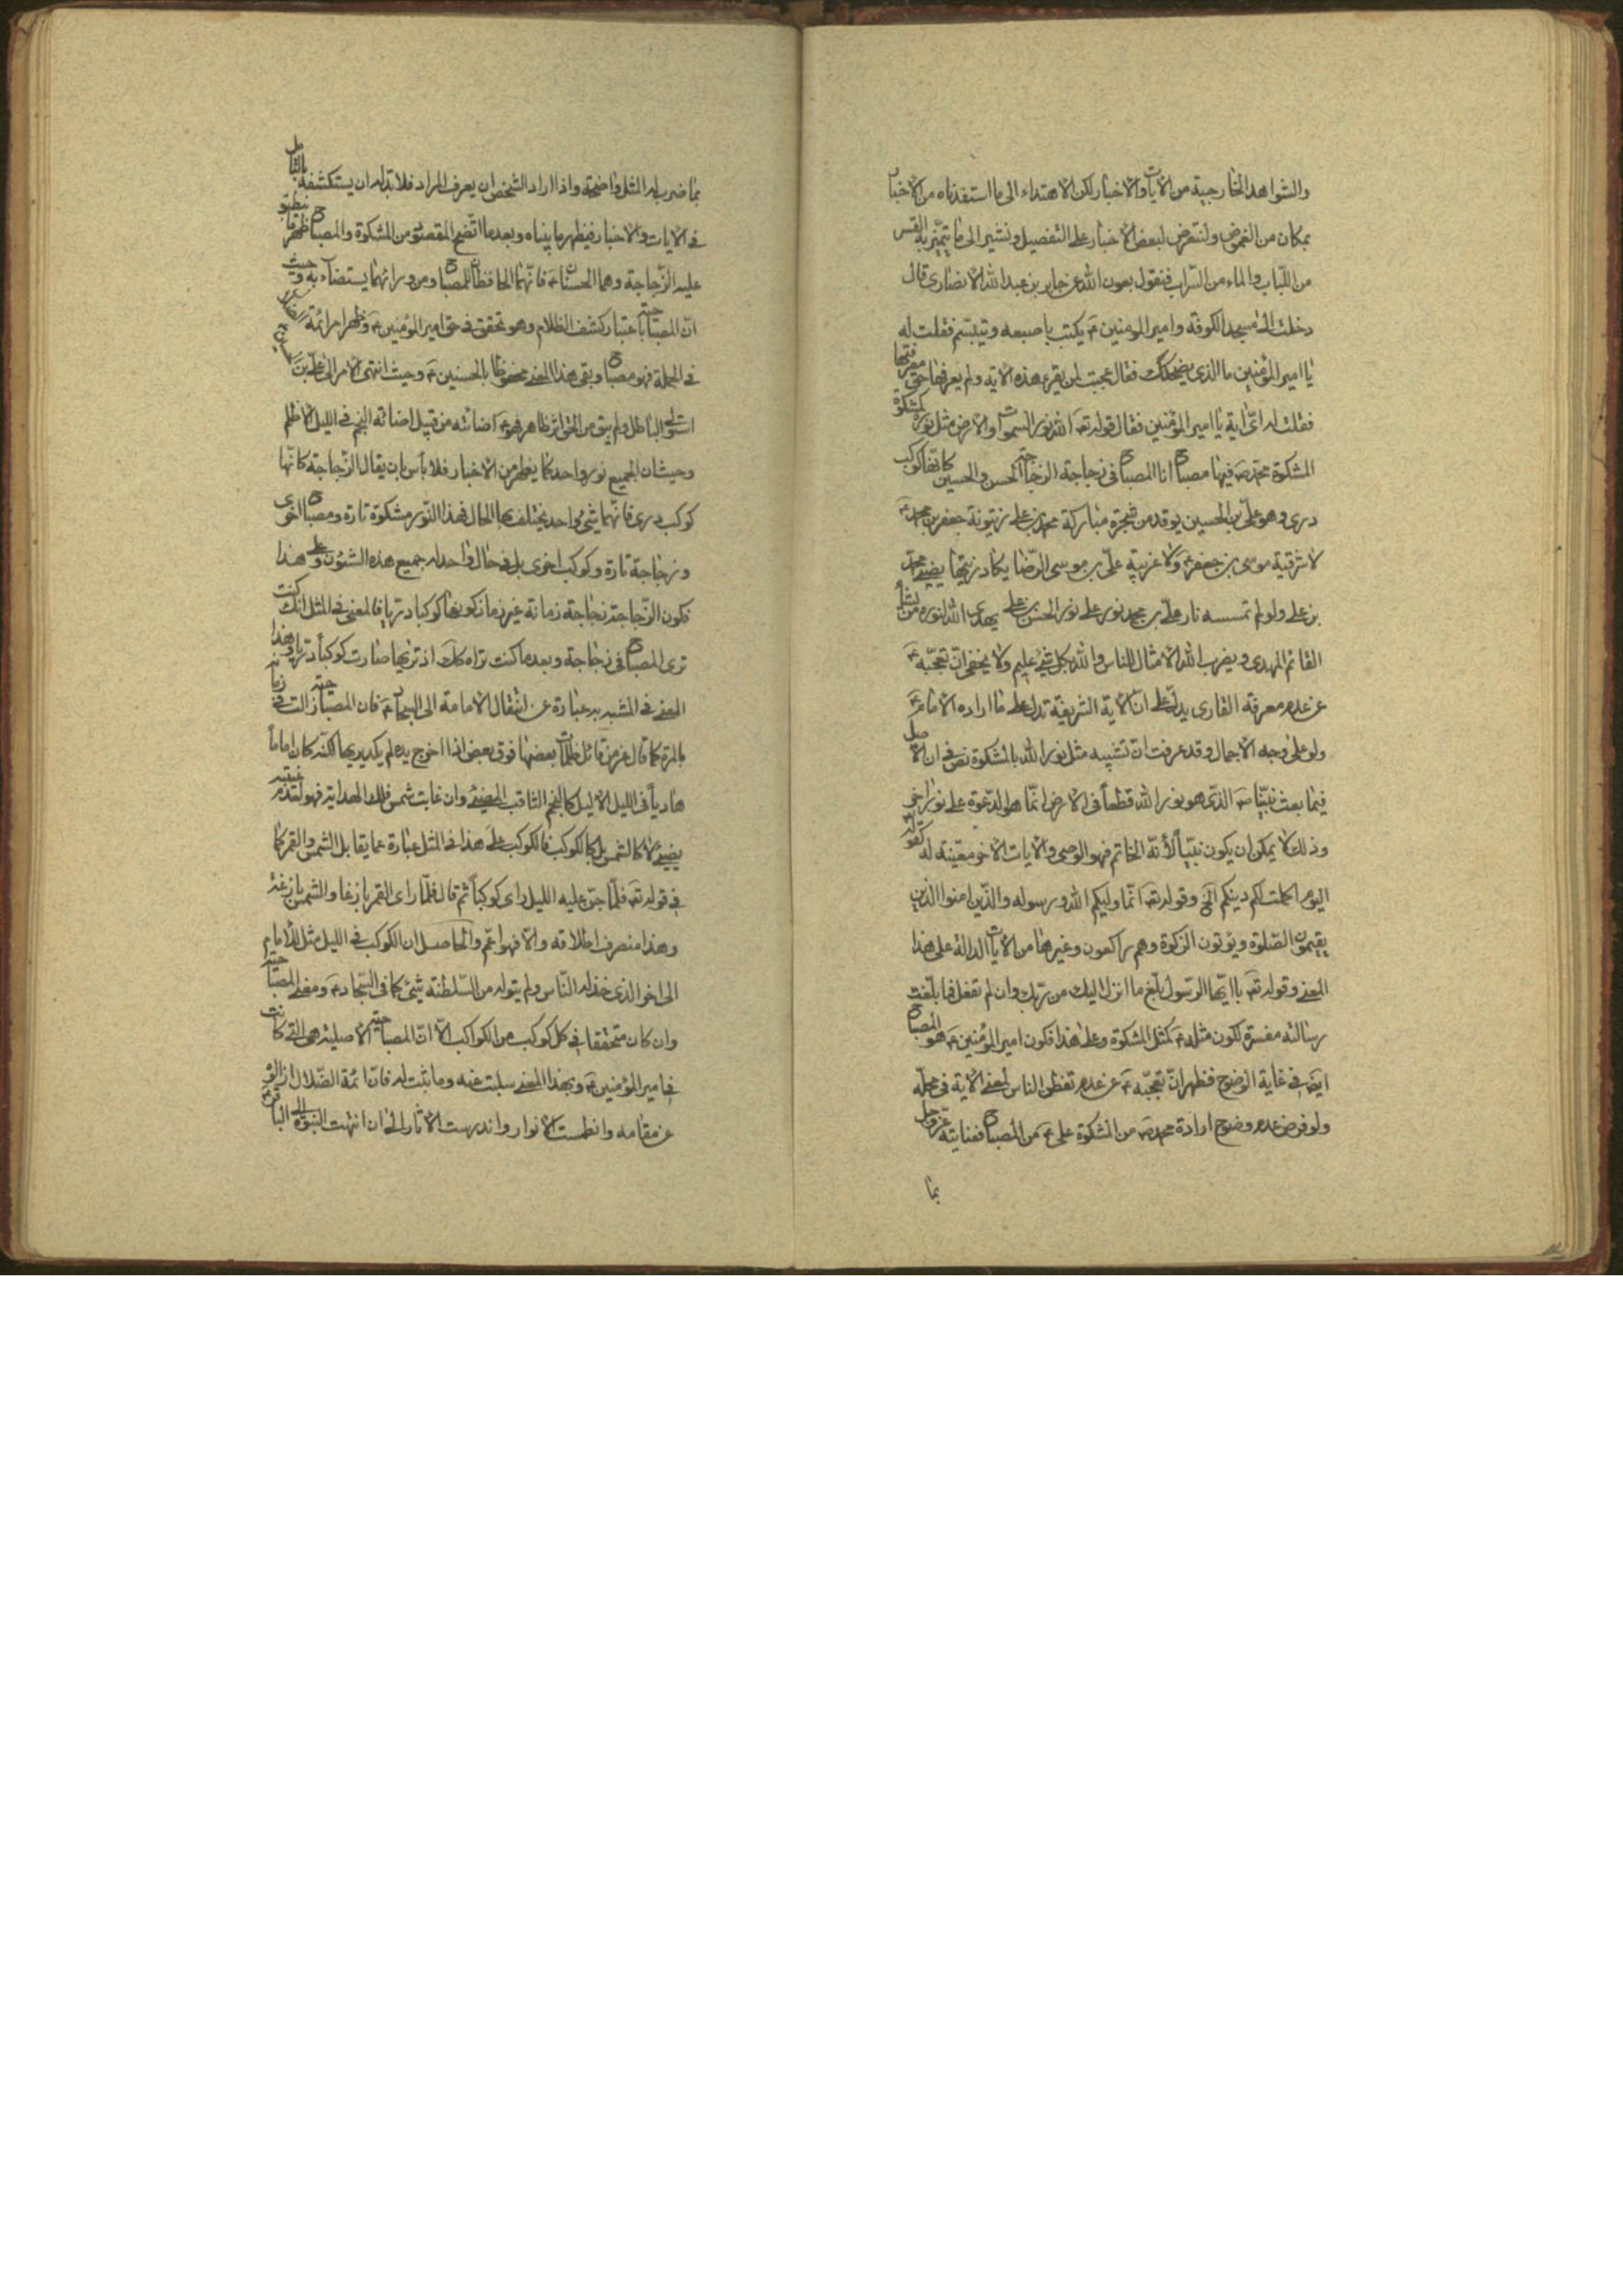 والشواهد الخارجية من الآيات والاخبار لكن الاهتداء الى ما استفدناه من الاخبار
بمكان من الغموض ولنتعرض لبعض الاخبار على التفصيل ونشير الى ما يتميّز به القشر
من اللّباب والماء من السّراب فنقول بعون الله عن جابر بن عبد الله الانصارى قال
دخلت الى مسجد الكوفة وامير المومنين ع يكتب باصبعه ويتبسّم فقلت له
يا امير المؤمنين ما الذى يضحكك فقال عجبت لمن يقرء هذه الاية ولم يعرفها حق معرفتها
فقلت له اىّ اية يا امير المؤمنين فقال قوله تع الله نور السموات والارض مثل نوره كمشكوة
المشكوة محمد ص فيها مصباح انا المصباح فى زجاجة الزجاجة الحسن والحسين كانها كوكب
درى وهو علىّ بن الحسين يوقد من شجرة مباركة محمد بن على زيتونة جعفر بن محمد ع
لا شرقية موسى بن جعفر ع ولا غربية علىّ بن موسى الرّضا يكاد زيتها يضيئ محمد
بن على ولو لم تمسسه نار علىّ بن محمد نور على نور الحسن بن على يهدى الله لنوره من يشأ
القائم المهدى ويضرب الله الامثال للناس والله بكل شئ عليم ولا يخفى انّ تعجّبه ع
عن عدم معرفة القارى يدلّ على انّ الاية الشريفة تدل على ما اراده الامام ع
ولو على وجه الاجمال وقد عرفت انّ تشبيه مثل نور الله بالمشكوة نص فى ان الاصل
فيما بعث نبيّنا ص الذّى هو نور الله قطعاً فى الارض انّما هو الدّعوة على نور اخر
وذلك لا يمكن ان يكون نبيّاً لأنّه الخاتم فهو الوصى والآيات الاخر معيّنة له كقوله
اليوم اكملت لكم دينكم الخ وقوله تع انّما وليكم الله ورسوله والّذين امنوا الذين
يقيمون الصّلوة ويؤتون الزكوة وهم راكعون وغيرها من الآيات الدالة على هذا
المعنى وقوله تع يا ايّها الرّسول بلّغ ما انزل اليك من ربّك وان لم تفعل فما بلّغت
رسالته مفسرة لكون مثله ع كمثل المشكوة وعلى هذا فكون امير المؤمنين ع هو المصباح
ايضا فى غاية الوضوح فظهر انّ تعجّبه ع عن عدم تفطن الناس لمعنى الاية فى محلّه
ولو فرض عدم وضوح ارادة محمد ص من المشكوة على ع من المصباح فعنايته عزّ وجل
بما
بما ضرب له المثل واضحة واذا اراد الشخص ان يعرف المراد فلا بدّ له ان يستكشفه بالتأمل
فى الايات والاخبار فيظهر ما بيناه وبعد ما اتضح المقصود من المشكوة والمصباح ظهر ما ينطبق
عليه الزّجاجة وهما الحسنان ع فانّهما الحافظان للمصباح ومن ورائهما يستضاء به وحيث
انّ المصباحية باعتبار كشف الظلام وهو تحقق فى حق امير المؤمنين ع وظهر امر ائمة
فى الجملة فهو مصباح وبقى هذا المعنى محفوظا بالحسنين ع وحيث انتهى الامر الى علىّ بن
استولى الباطل ولم يبق من الحق اثر ظاهر فهو ع اضائته من قبيل اضائة النجم فى الليل الاظلم
وحيث ان الجميع نور واحد كما يظهر من الاخبار فلا بأس بان يقال الزّجاجة كانّها
كوكب درى فانّهما شئ واحد يختلف بها الحال فهذا النّور مشكوة تارة ومصباح اخرى
وزجاجة تارة وكوكب اخرى بل فى حال واحد له جميع هذه الشئون وعلى هذا
فكون الزّجاجة زجاجة زمانه غير زمان كونها كوكبا دريا فالمعنى فى المثل انك كنت
ترى المصباح فى زجاجة وبعد ما كنت تراه كك اذ تريها صارت كوكباً دريا وهذا
المعنى فى المشبه به عبارة عن انتقال الامامة الى السجاد ع فان المصباحية زالت فى زمانه
بالمرة كما قال عز من قائل ظلمات بعضها فوق بعض اذا اخرج يده لم يكد يريها لكنه كان اماماً
هادياً فى الليل الاليل كالنجم الثاقب المضيئ وان غابت شمس فلك الهداية فهو لغيبته
يضيئ لا كالشمس بل كالكوكب فالكوكب على هذا فى المثل عبارة عما يقابل الشمس والقمر كما
فى قوله تع فلمّا جنّ عليه الليل راى كوكباً ثم قال فلمّا راى القمر بازغا والشمس بازغة
وهذا منصرف اطلاقه والا فهو اعم والحاصل ان الكوكب فى الليل مثل للامام
الى اخر الذى خذله النّاس ولم يتوله من السّلطنة شئ كما فى السّجاد ع ومعنى المصباحية
وان كان متحققا فى كل كوكب من الكواكب الّا انّ المصباحية الاصلية هى التى كانت
فى امير المؤمنين ع وبهذا المعنى سلبت عنه وما ثبت له فانّ ائمة الضّلال
عن مقامه وانطمست الانوار واندرست الاثار الى ان انتهت النبوة الى الباقر ع